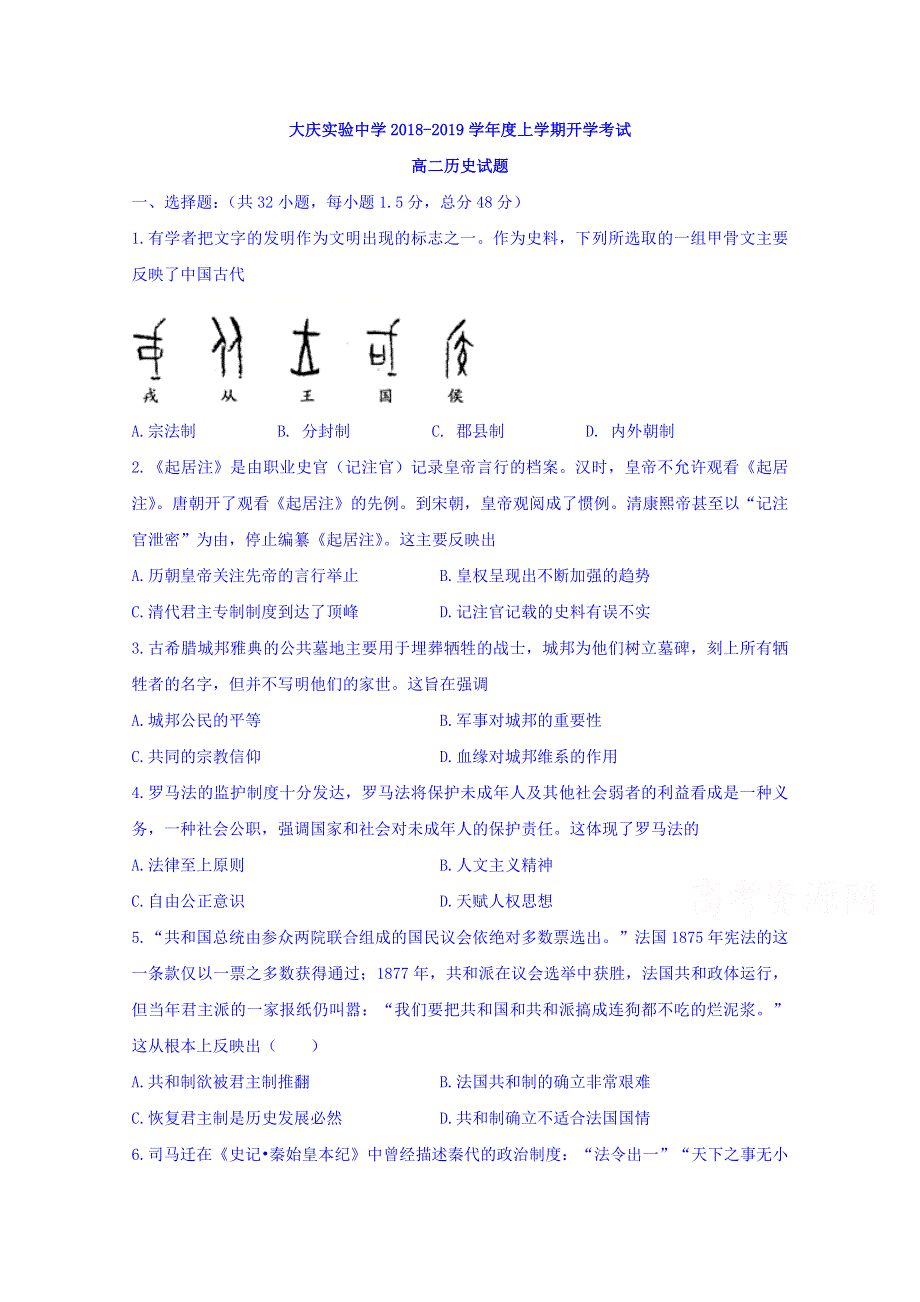 大庆实验中学2018-2019学年度上学期开学考试
高二历史试题
一、选择题:（共32小题，每小题1.5分，总分48分）
1.有学者把文字的发明作为文明出现的标志之一。作为史料，下列所选取的一组甲骨文主要
反映了中国古代
戎 从 王 国 侯
A.宗法制 B. 分封制 C. 郡县制 D. 内外朝制
2.《起居注》是由职业史官（记注官）记录皇帝言行的档案。汉时，皇帝不允许观看《起居
注》。唐朝开了观看《起居注》的先例。到宋朝，皇帝观阅成了惯例。清康熙帝甚至以“记注
官泄密”为由，停止编纂《起居注》。这主要反映出
A.历朝皇帝关注先帝的言行举止 B.皇权呈现出不断加强的趋势
C.清代君主专制制度到达了顶峰 D.记注官记载的史料有误不实
3.古希腊城邦雅典的公共墓地主要用于埋葬牺牲的战士，城邦为他们树立墓碑，刻上所有牺
牲者的名字，但并不写明他们的家世。这旨在强调
A.城邦公民的平等 B.军事对城邦的重要性
C.共同的宗教信仰 D.血缘对城邦维系的作用
4.罗马法的监护制度十分发达，罗马法将保护未成年人及其他社会弱者的利益看成是一种义
务，一种社会公职，强调国家和社会对未成年人的保护责任。这体现了罗马法的
A.法律至上原则 B.人文主义精神
C.自由公正意识 D.天赋人权思想
高考资源网
5.“共和国总统由参众两院联合组成的国民议会依绝对多数票选出。”法国1875年宪法的这
一条款仅以一票之多数获得通过；1877年，共和派在议会选举中获胜，法国共和政体运行，
但当年君主派的一家报纸仍叫嚣：“我们要把共和国和共和派搞成连狗都不吃的烂泥浆。”
这从根本上反映出（　　）
A.共和制欲被君主制推翻 B.法国共和制的确立非常艰难
C.恢复君主制是历史发展必然 D.共和制确立不适合法国国情
6.司马迁在《史记•秦始皇本纪》中曾经描述秦代的政治制度：“法令出一”“天下之事无小